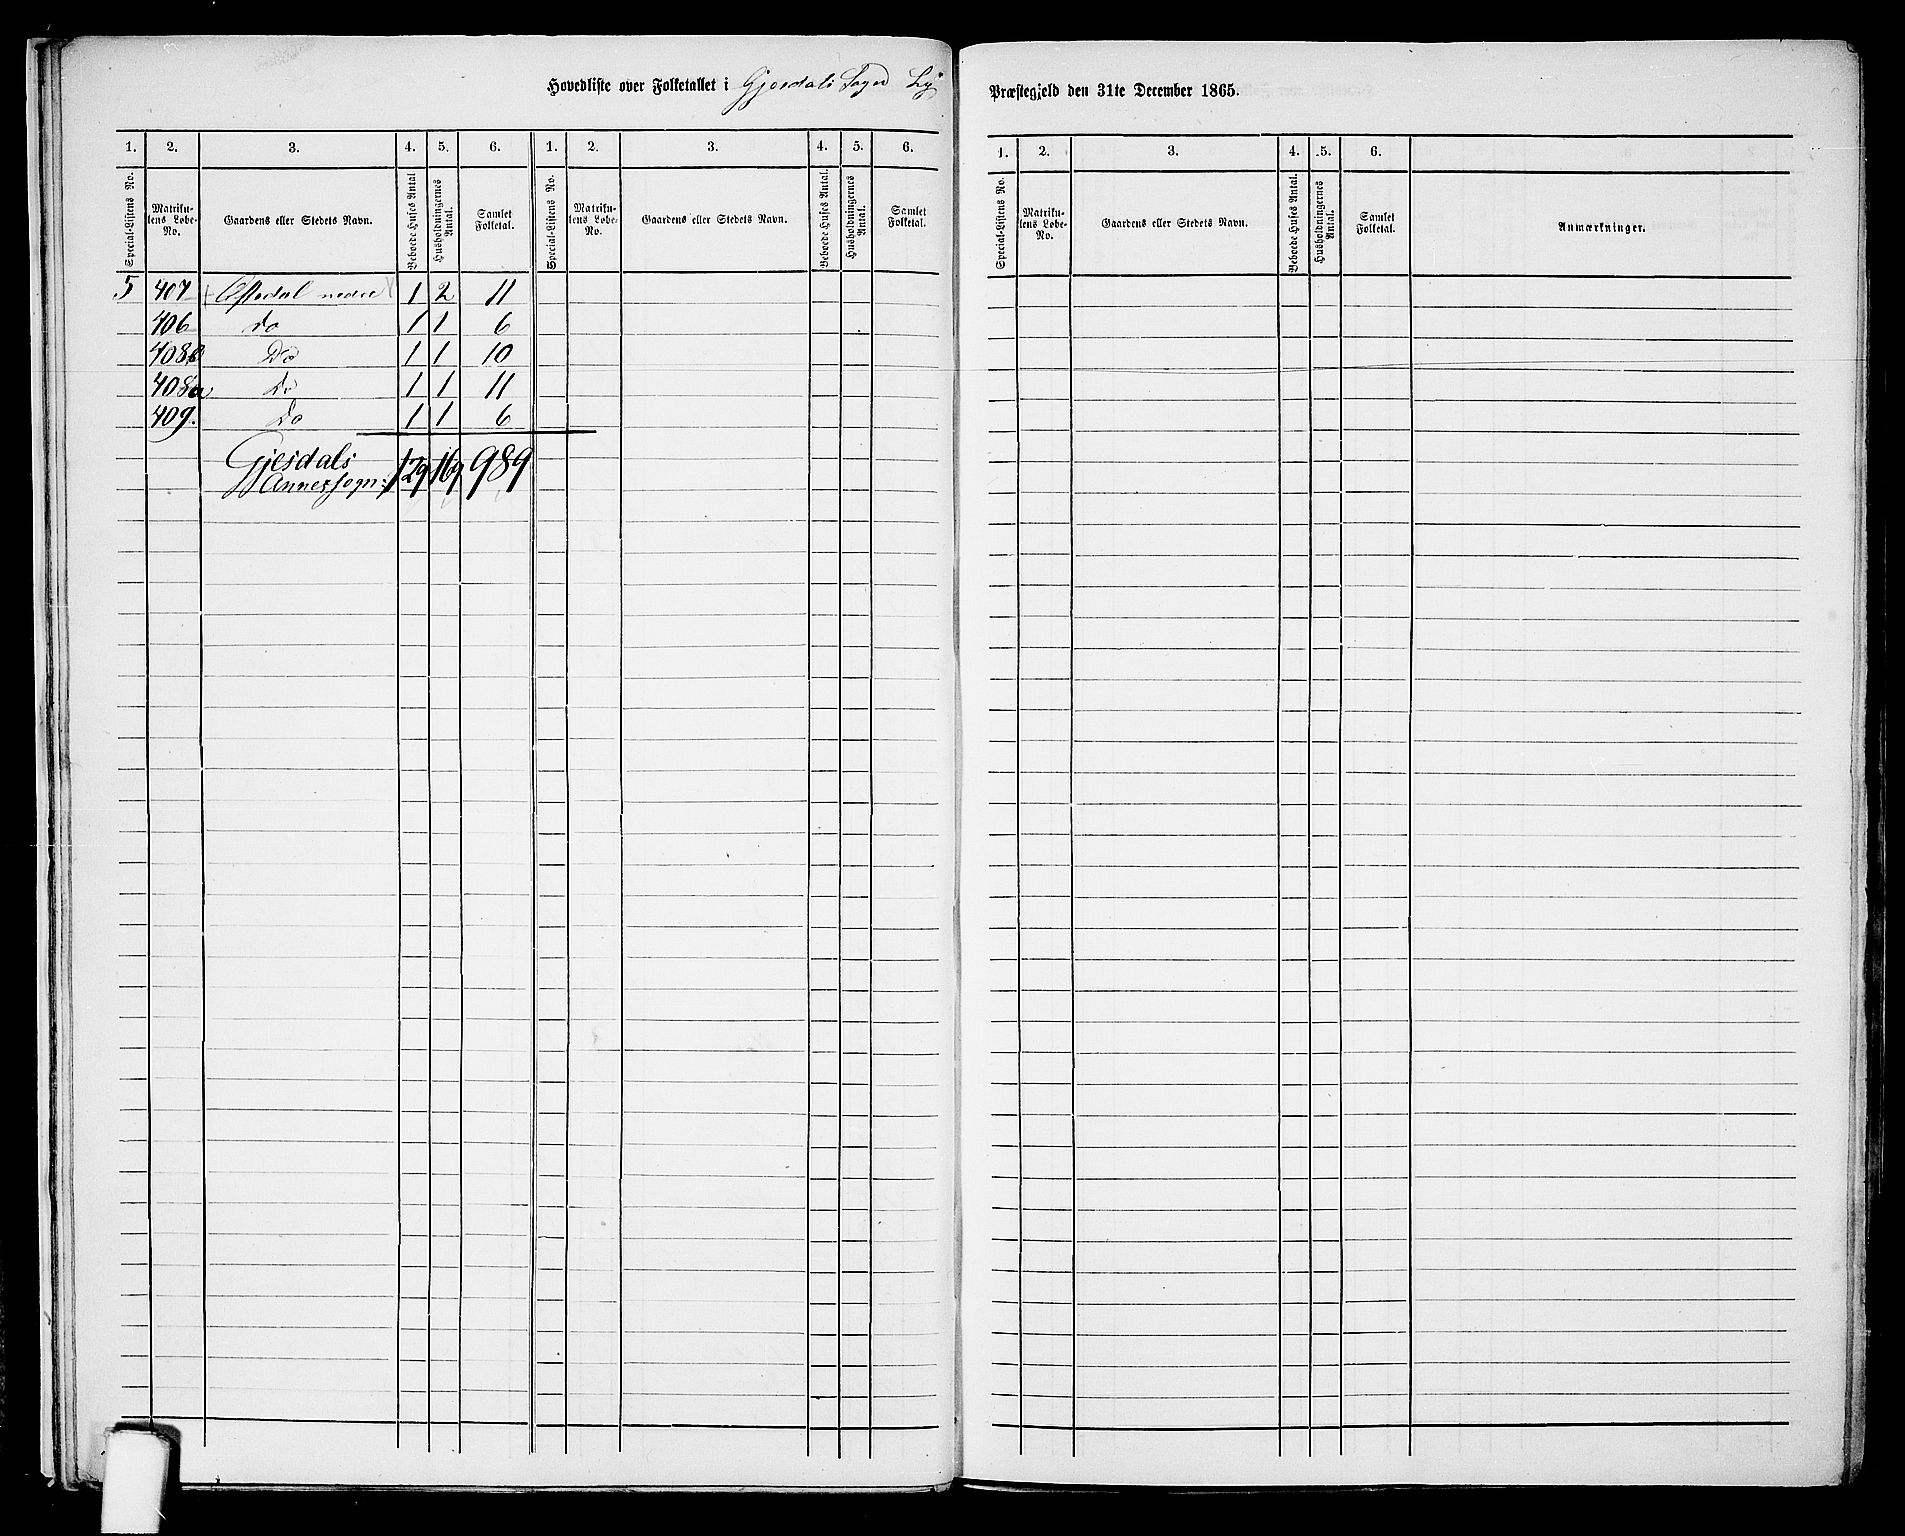 Hovedliste over Folketallet i Gjesdals Sogn Ly Præstegjeld den 31te December 1865.
1. 2. 3. 4. 5. 6. 1. 2. 3. 4. 5. 6. 1. 2. 3. 4. 5. 6.
Special-Listens No. Matrikulens Løbe-No. Gaardens eller Stedets Navn. Beboede Huses Antal Husholdningernes Antal. Samlet Folketal. Special-Listens No. Matrikulens Løbe-No. Gaardens eller Stedets Navn. Beboede Huses Antal. Husholdningernes Antal. Samlet Folketal. Special-Listens No. Matrikulens Løbe-No. Gaardens eller Stedets Navn. Beboede Huses Antal. Husholdningernes Antal. Samlet Folketal. Anmærkninger.
5 407 nedre 1 2 11
406 Do 1 1 6
408b Do 1 1 10
408a Do 1 1 11
409. Do 1 1 6
Gjesdals
Annexsogn: 129 169 989